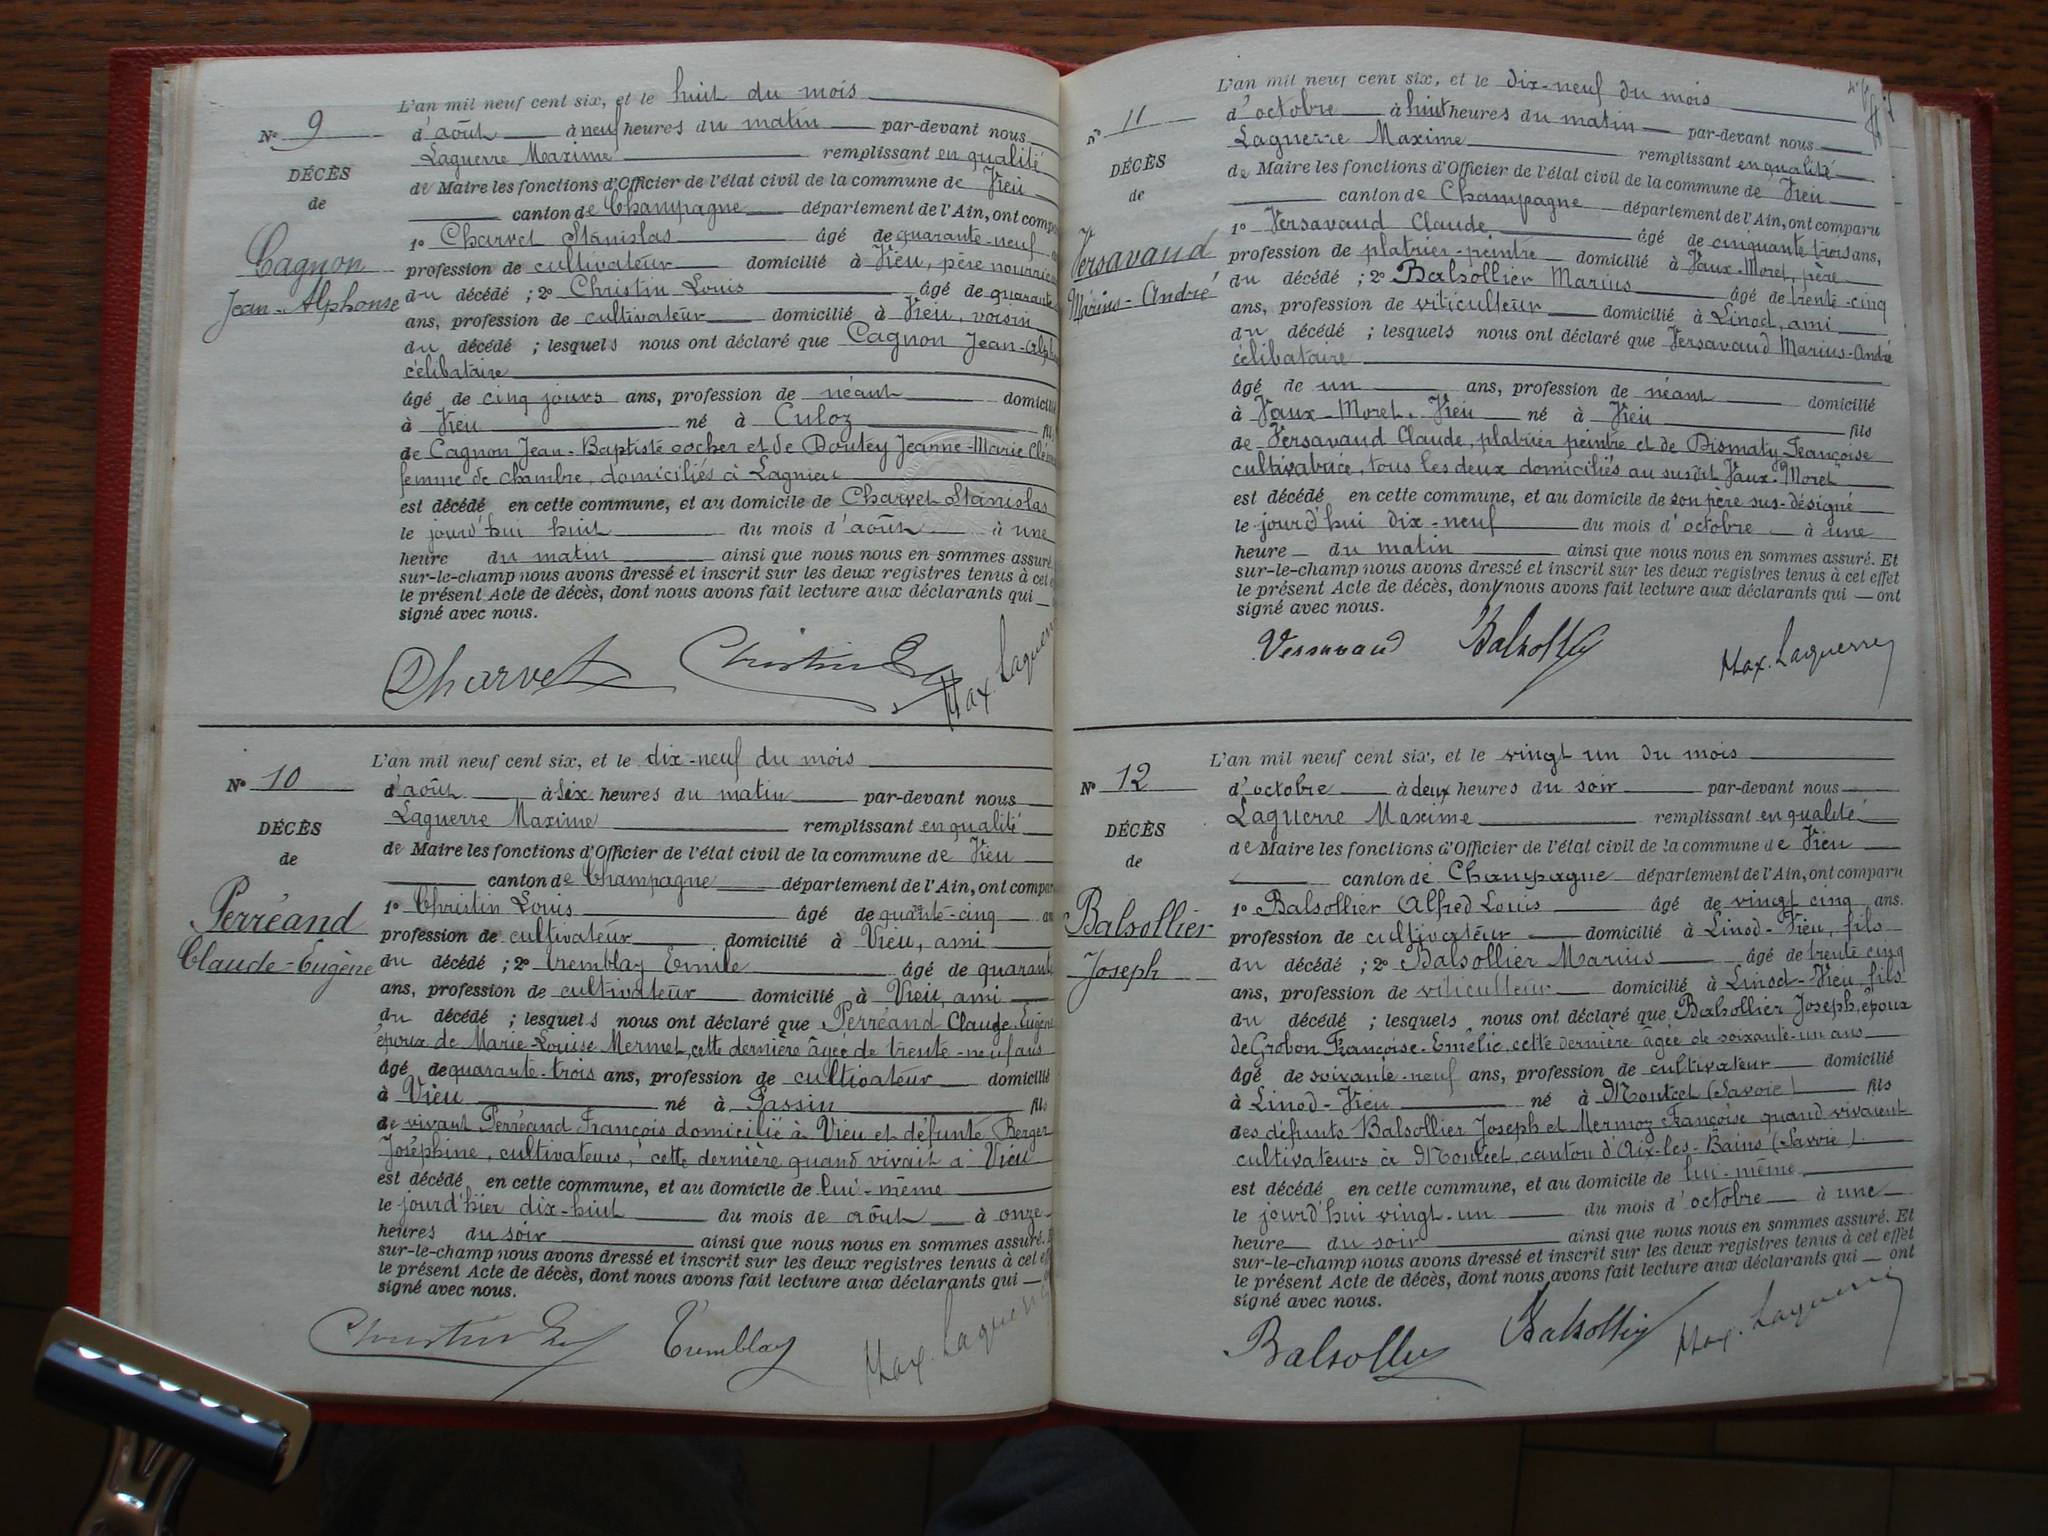 L'an mil neuf cent six, et le huit du mois
Nº 9
d'août à neuf heures du matin par-devant nous
Laguerre Maxime remplissant en qualité
DÉCÈS
de Maire les fonctions d'Officier de l'état civil de la commune de Vieu
de
canton de Champagne département de l'Ain, ont compa
1º Charvet Stanislas âgé de quarante-neuf
Cagnon
profession de cultivateur domicilié à Vieu, père nourricier
Jean-Alphonse
du décédé ; 2º Christin Louis âgé de quarante
ans, profession de cultivateur domicilié à Vieu, voisin
du décédé ; lesquels nous ont déclaré que Cagnon Jean-Alph
célibataire
âgé de cinq jours ans, profession de néant domicilié
à Vieu né à Culoz fils
de Cagnon Jean-Baptiste cocher et de Doutey Jeanne-Marie
femme de chambre, domiciliés à Lagnieu
est décédé en cette commune, et au domicile de Charvet Stanislas
le jourd'hui huit du mois d'août à une
heure du matin ainsi que nous nous en sommes assuré.
sur-le-champ nous avons dressé et inscrit sur les deux registres tenus à cet
le présent Acte de décès, dont nous avons fait lecture aux déclarants qui
signé avec nous.
Charvet Christin Max. Laguerre
L'an mil neuf cent six, et le dix-neuf du mois
Nº 10
d'août à six heures du matin par-devant nous
Laguerre Maxime remplissant en qualité
DÉCÈS
de Maire les fonctions d'Officier de l'état civil de la commune de Vieu
de
canton de Champagne département de l'Ain, ont compar
1º Christin Louis âgé de quante-cinq an
Perréand
profession de cultivateur domicilié à Vieu, ami
Claude-Eugène
du décédé ; 2º Tremblay Emile âgé de quarante
ans, profession de cultivateur domicilié à Vieu, ami
du décédé ; lesquels nous ont déclaré que Perréand Claude-Eugène
époux de Marie-Louise Mermet, cette dernière âgée de trente-neuf ans
âgé de quarante-trois ans, profession de cultivateur domicilié
à Vieu né à Passin fils
de vivant Perréand François domicilié à Vieu et défunte Berger
Joséphine, cultivateurs, cette dernière quand vivait à Vieu
est décédé en cette commune, et au domicile de lui-même
le jourd'hier dix-huit du mois de août à onze
heures du soir ainsi que nous nous en sommes assuré.
sur-le-champ nous avons dressé et inscrit sur les deux registres tenus à cet eff
le présent Acte de décès, dont nous avons fait lecture aux déclarants qui
signé avec nous.
Christin Tremblay Max. Laguerre
L'an mil neuf cent six, et le dix-neuf du mois
Nº 11
d'octobre à huit heures du matin par-devant nous
Laguerre Maxime remplissant en qualité
DÉCÈS
de Maire les fonctions d'Officier de l'état civil de la commune de Vieu
de
canton de Champagne département de l'Ain, ont comparu
1º Versavaud Claude âgé de cinquante trois ans,
Versavaud
profession de platrier-peintre domicilié à Vaux-Moret, père
Marius-André
du décédé ; 2º Balsollier Marius âgé de trente-cinq
ans, profession de viticulteur domicilié à Linod, ami
du décédé ; lesquels nous ont déclaré que Versavaud Marius-André
célibataire
âgé de un ans, profession de néant domicilié
à Vaux-Moret, Vieu né à Vieu fils
de Versavaud Claude, platrier peintre et de Dismaty Françoise
cultivatrice, tous les deux domiciliés au susdit Vaux-Moret
est décédé en cette commune, et au domicile de son père sus-désigné
le jourd'hui dix-neuf du mois d'octobre à une
heure du matin ainsi que nous nous en sommes assuré. Et
sur-le-champ nous avons dressé et inscrit sur les deux registres tenus à cet effet
le présent Acte de décès, dont nous avons fait lecture aux déclarants qui ont
signé avec nous.
Versavaud Balsollier Max. Laguerre
L'an mil neuf cent six, et le vingt un du mois
Nº 12
d'octobre à deux heures du soir par-devant nous
Laguerre Maxime remplissant en qualité
DÉCÈS
de Maire les fonctions d'Officier de l'état civil de la commune de Vieu
de
canton de Champagne département de l'Ain, ont comparu
1º Balsollier Alfred Louis âgé de vingt cinq ans.
Balsollier
profession de cultivateur domicilié à Linod-Vieu, fils
Joseph
du décédé ; 2º Balsollier Marius âgé de trente cinq
ans, profession de viticulteur domicilié à Linod-Vieu, fils
du décédé ; lesquels nous ont déclaré que Balsollier Joseph, époux
de Grobon Françoise-Emélie, cette dernière âgée de soixante-un ans
âgé de soixante-neuf ans, profession de cultivateur domicilié
à Linod-Vieu né à Montcet (Savoie) fils
des défunts Balsollier Joseph et Mermoz Françoise quand vivaient
cultivateurs à Montcet, canton d'Aix-les-Bains (Savoie).
est décédé en cette commune, et au domicile de lui-même
le jourd'hui vingt-un du mois d'octobre à une
heure du soir ainsi que nous nous en sommes assuré. Et
sur-le-champ nous avons dressé et inscrit sur les deux registres tenus à cet effet
le présent Acte de décès, dont nous avons fait lecture aux déclarants qui ont
signé avec nous.
Balsollier Balsollier Max. Laguerre